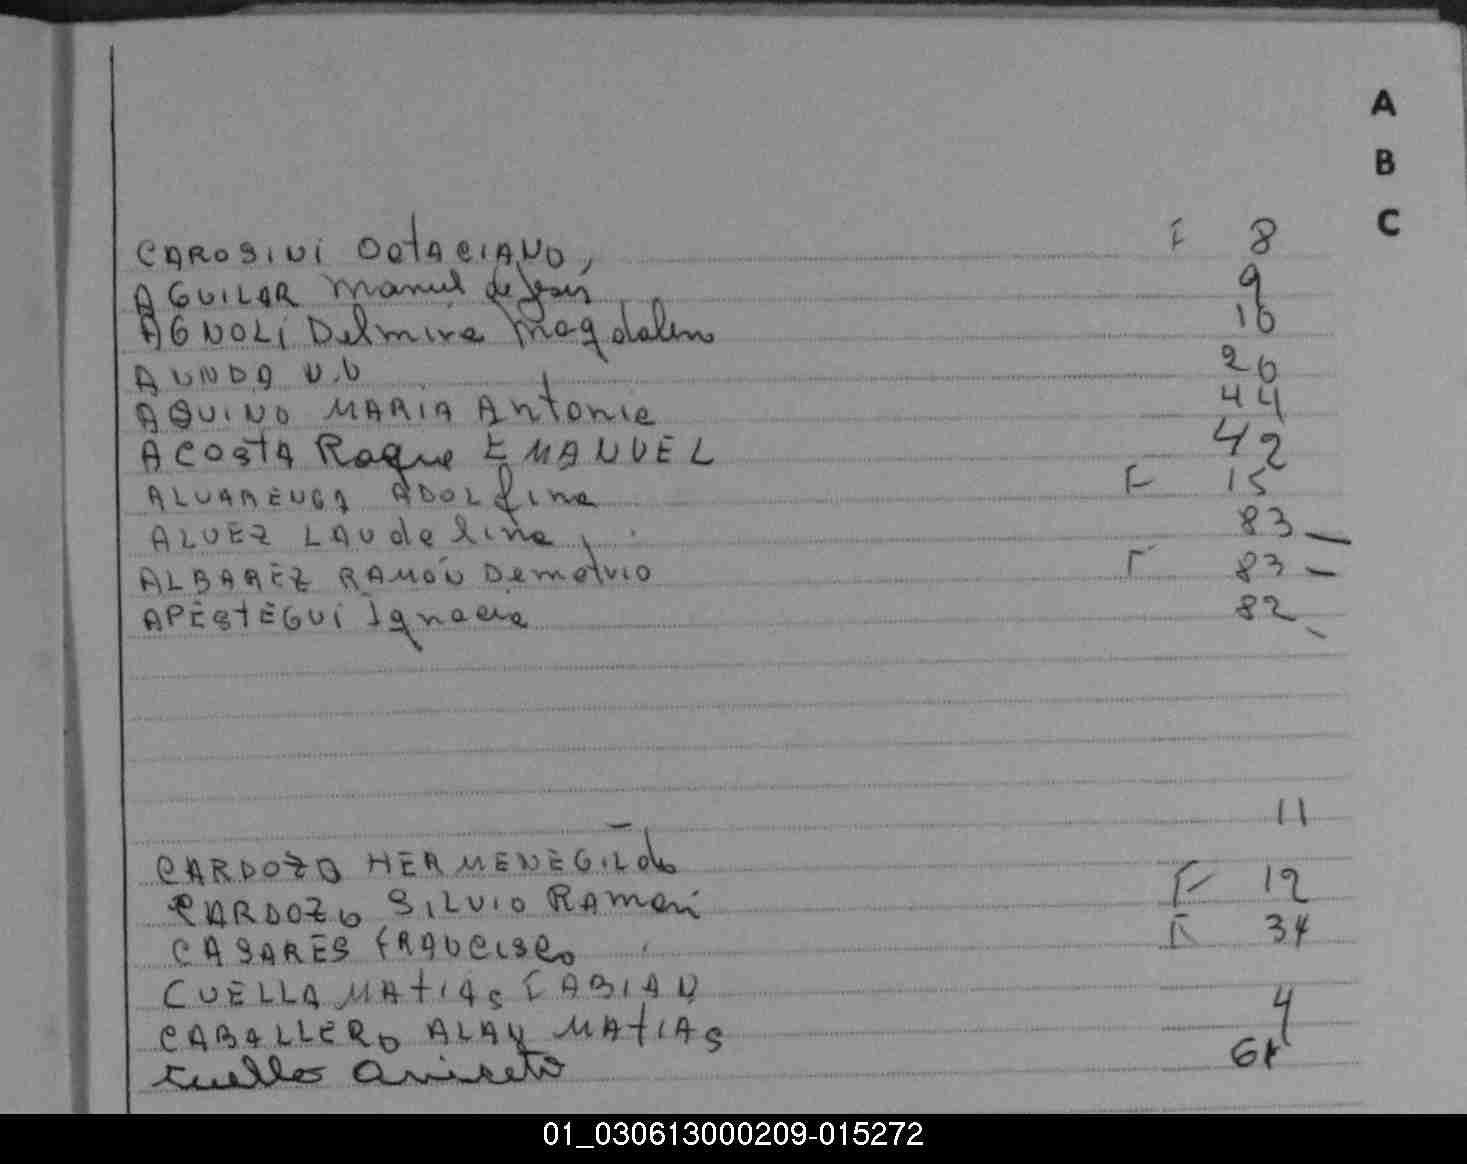 A
B
C
CAROSINI OCTACIANO, F 8
AGUILAR Manuel de Jesús 9
AGNOLI Delmira Magdalen 10
AUNDA N.N 20
AQUINO MARIA Antonia 44
ACOSTA Roque EMANUEL 42
ALVARENGA ADOLfina F 15
ALVEZ LAUdelina 83 —
ALBAREZ RAMÓN Demetrio F 83 –
APESTEGUI Ignacia 82 -
11
CARDOZO HERMENEGILdo
CARDOZO SILVIO RAMON F 12
CASARES FRANCISCO F 34
CUELLA MATIAS FABIAN
CABALLERO ALAN MATIAS 4
Cuello Aniceto 61
01_030613000209-015272